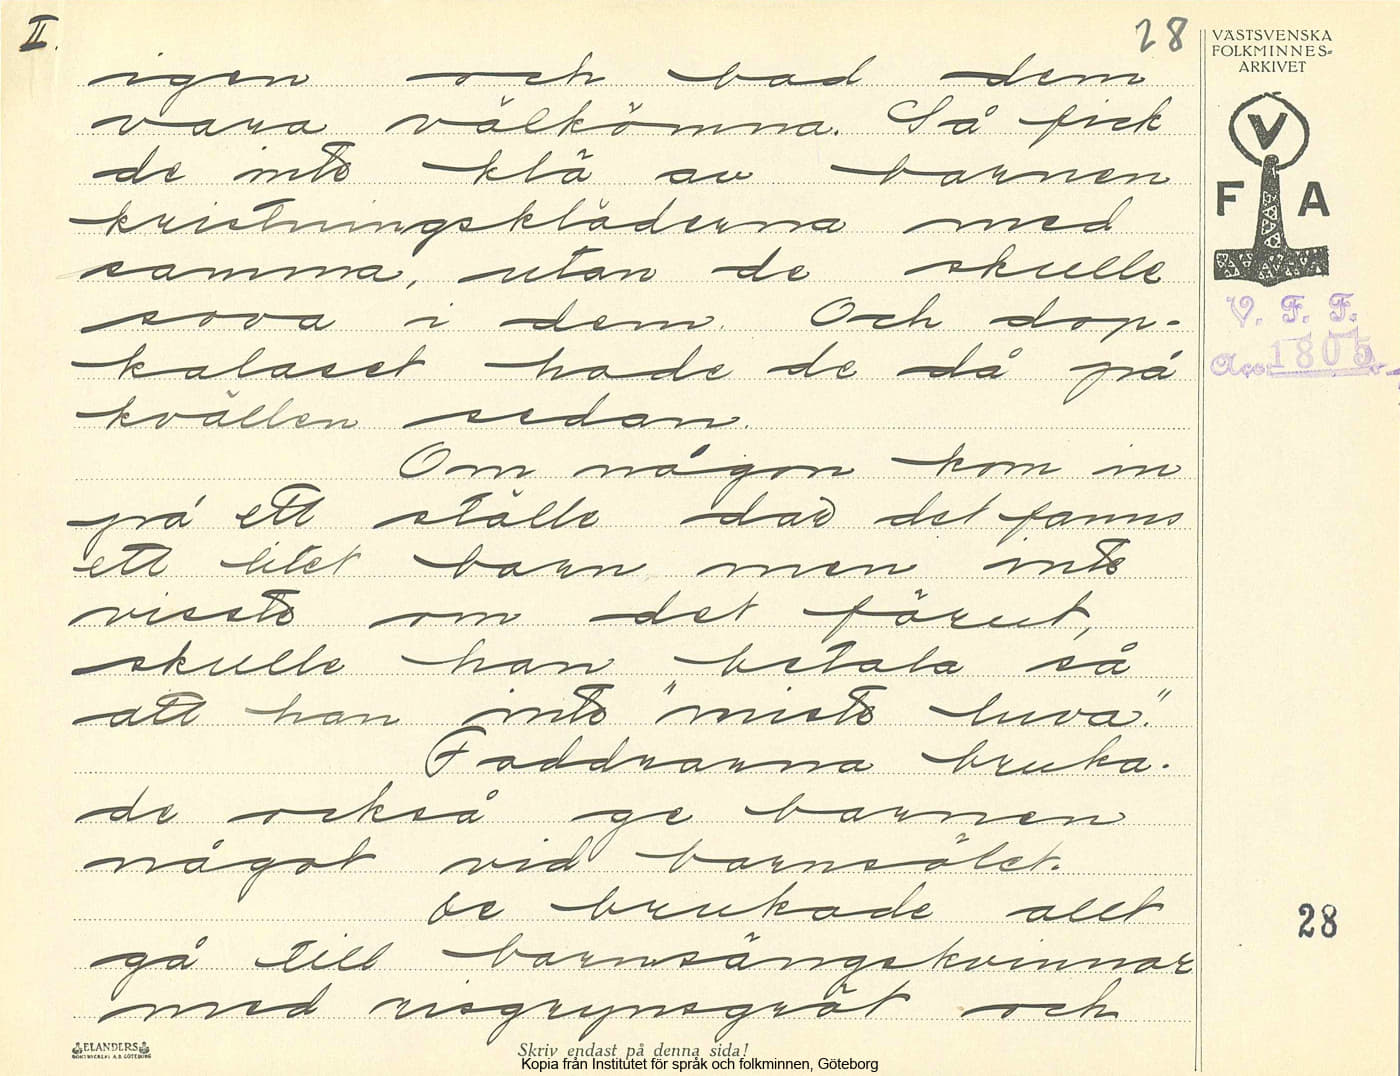 II.
28
VÄSTSVENSKA
FOLKMINNES-
ARKIVET
V
F A
V. F. F.
Acc. 1805
igen och bad dem
vara välkömna. Så fick
de inte klä av barnen
kristningskläderna med
samma, utan de skulle
sova i dem. Och dop-
kalaset hade de då på
kvällen sedan.
Om någon kom in
på ett ställe där det fanns
ett litet barn men inte
visste om det förut,
skulle han betala så
att han inte "miste luva".
Faddrarna bruka-
de också ge barnen
något vid barnsölet.
De brukade allt
gå till barnsängskvinnor
med risgrynsgröt och
28
ELANDERS
BOKTRYCKERI A.B. GÖTEBORG
Skriv endast på denna sida!
Kopia från Institutet för språk och folkminnen, Göteborg